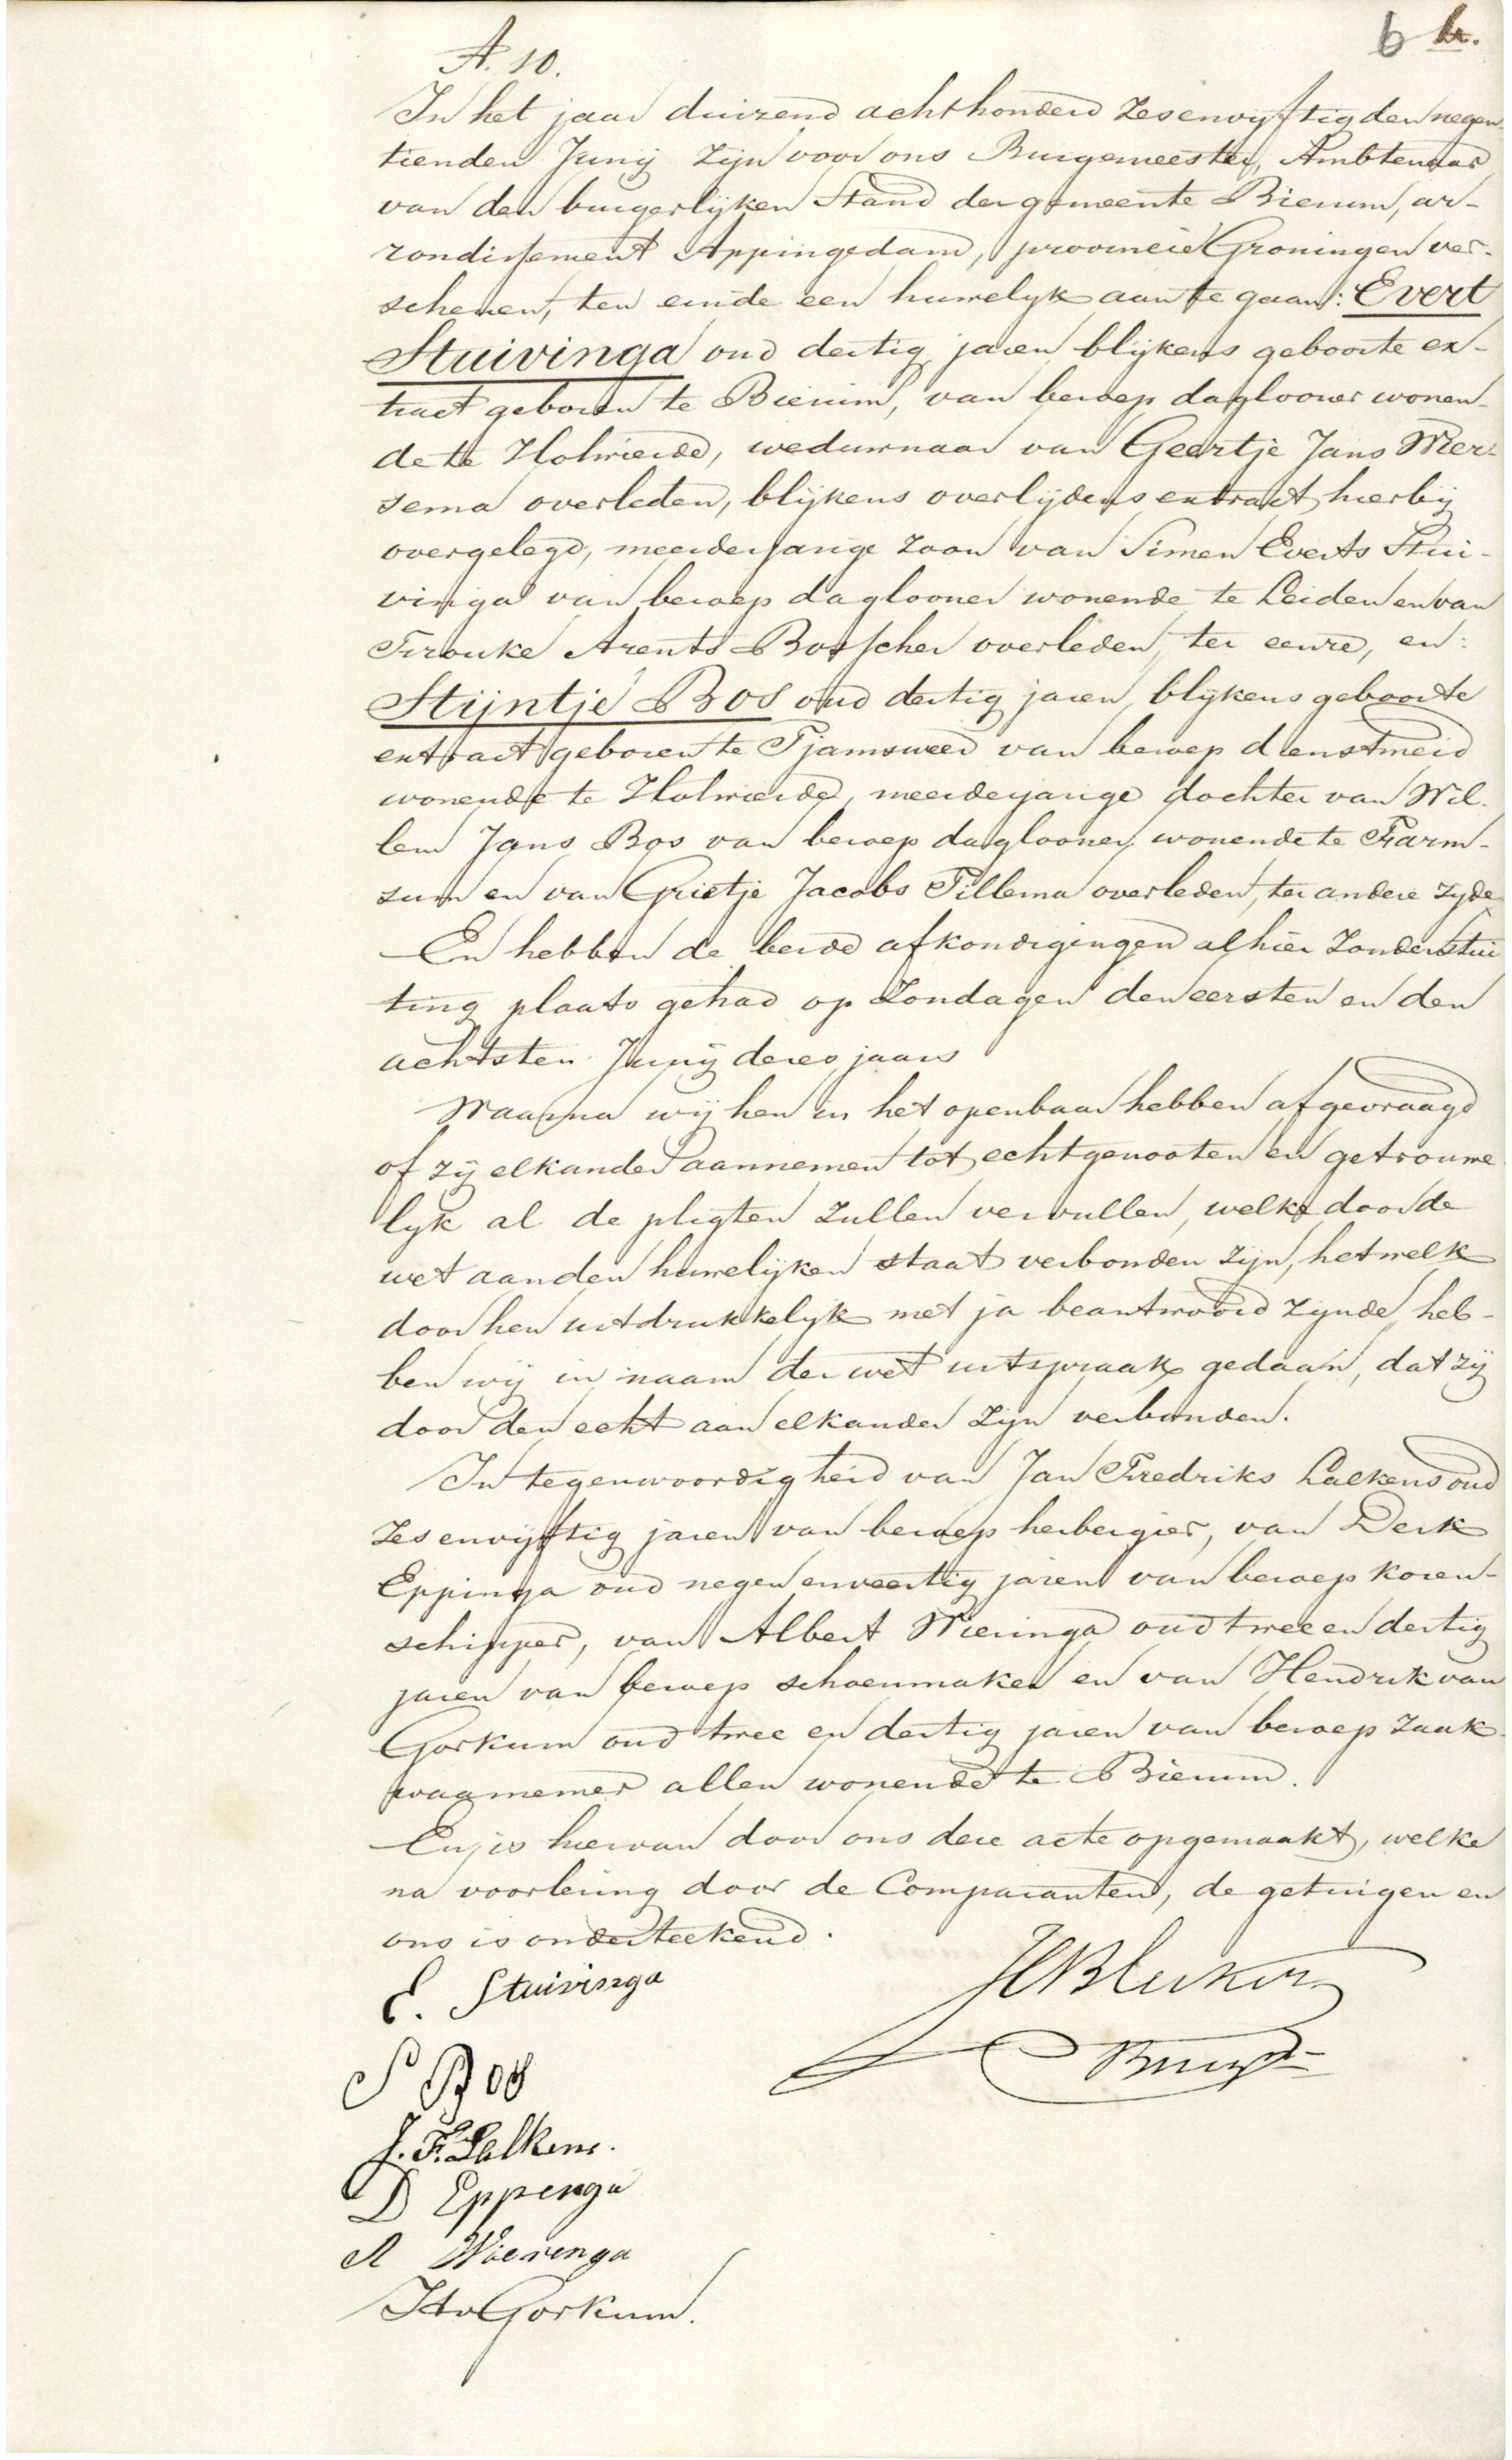 A. 10.
6
In het jaar duizend achthonderd Zesenvyftig den negen
tienden Junij zijn voor ons Burgemeester, Ambtenaar
van den burgerlijken Stand der gemeente Bierum, ar-
rondissement Appingedam, provincie Groningen ver-
schenen, ten einde een huwelyk aan te gaan: Evert
Stuivinga oud dertig jaren blijkens geboorte ex-
tract geboren te Bierum, van beroep daglooner wonen-
de te Holwierde, weduwnaar van Geertje Jans Wier-
sema overleden, blijkens overlijdens extract hierbij
overgelegd, meerderjarige zoon van Simen Everts Stui-
vinga van beroep daglooner wonende te Leiden en van
Frouke Arents Bosscher overleden, ter eenre, en:
Stijntje Bos oud dertig jaren blijkens geboorte
extract geboren te Tjamsweer van beroep dienstmeid
wonende te Holwierde, meerderjarige dochter van Wil-
lem Jans Bos van beroep daglooner, wonende te Farm-
sum en van Grietje Jacobs Tillema overleden, ter andere zyde
En hebben de beide afkondigingen alhier Zonder stui
ting plaats gehad op Zondagen den eersten en den
achtsten Junij dezes jaars
Waarna wij hen in het openbaar hebben afgevraagd
of zij elkander aannemen tot echtgenooten en getrouwe
lyk al de pligten zullen vervullen, welke door de
wet aan den huwelijken staat verbonden zijn, hetwelk
door hen uitdrukkelyk met ja beantwoord zynde, heb-
ben wij in naam der wet uitspraak gedaan, dat zij
door den echt aan elkander zijn verbonden.
In tegenwoordigheid van Jan Fredriks Lalkens oud
Zesenvijftig jaren van beroep herbergier, van Derk
Eppinga oud negen enveertig jaren van beroep koren-
schipper, van Albert Wieringa oud twee en dertig
jaren van beroep schoenmaker en van Hendrik van
Gorkum oud twee en dertig jaren van beroep zaak
waarnemer allen wonende te Bierum.
En is hiervan door ons deze acte opgemaakt, welke
na voorlezing door de Comparanten, de getuigen en
ons is onderteekend.
E. Stuivinga
S Bos
J. F. Lalkens.
D Eppenga
A Wierenga
H v Gorkum.